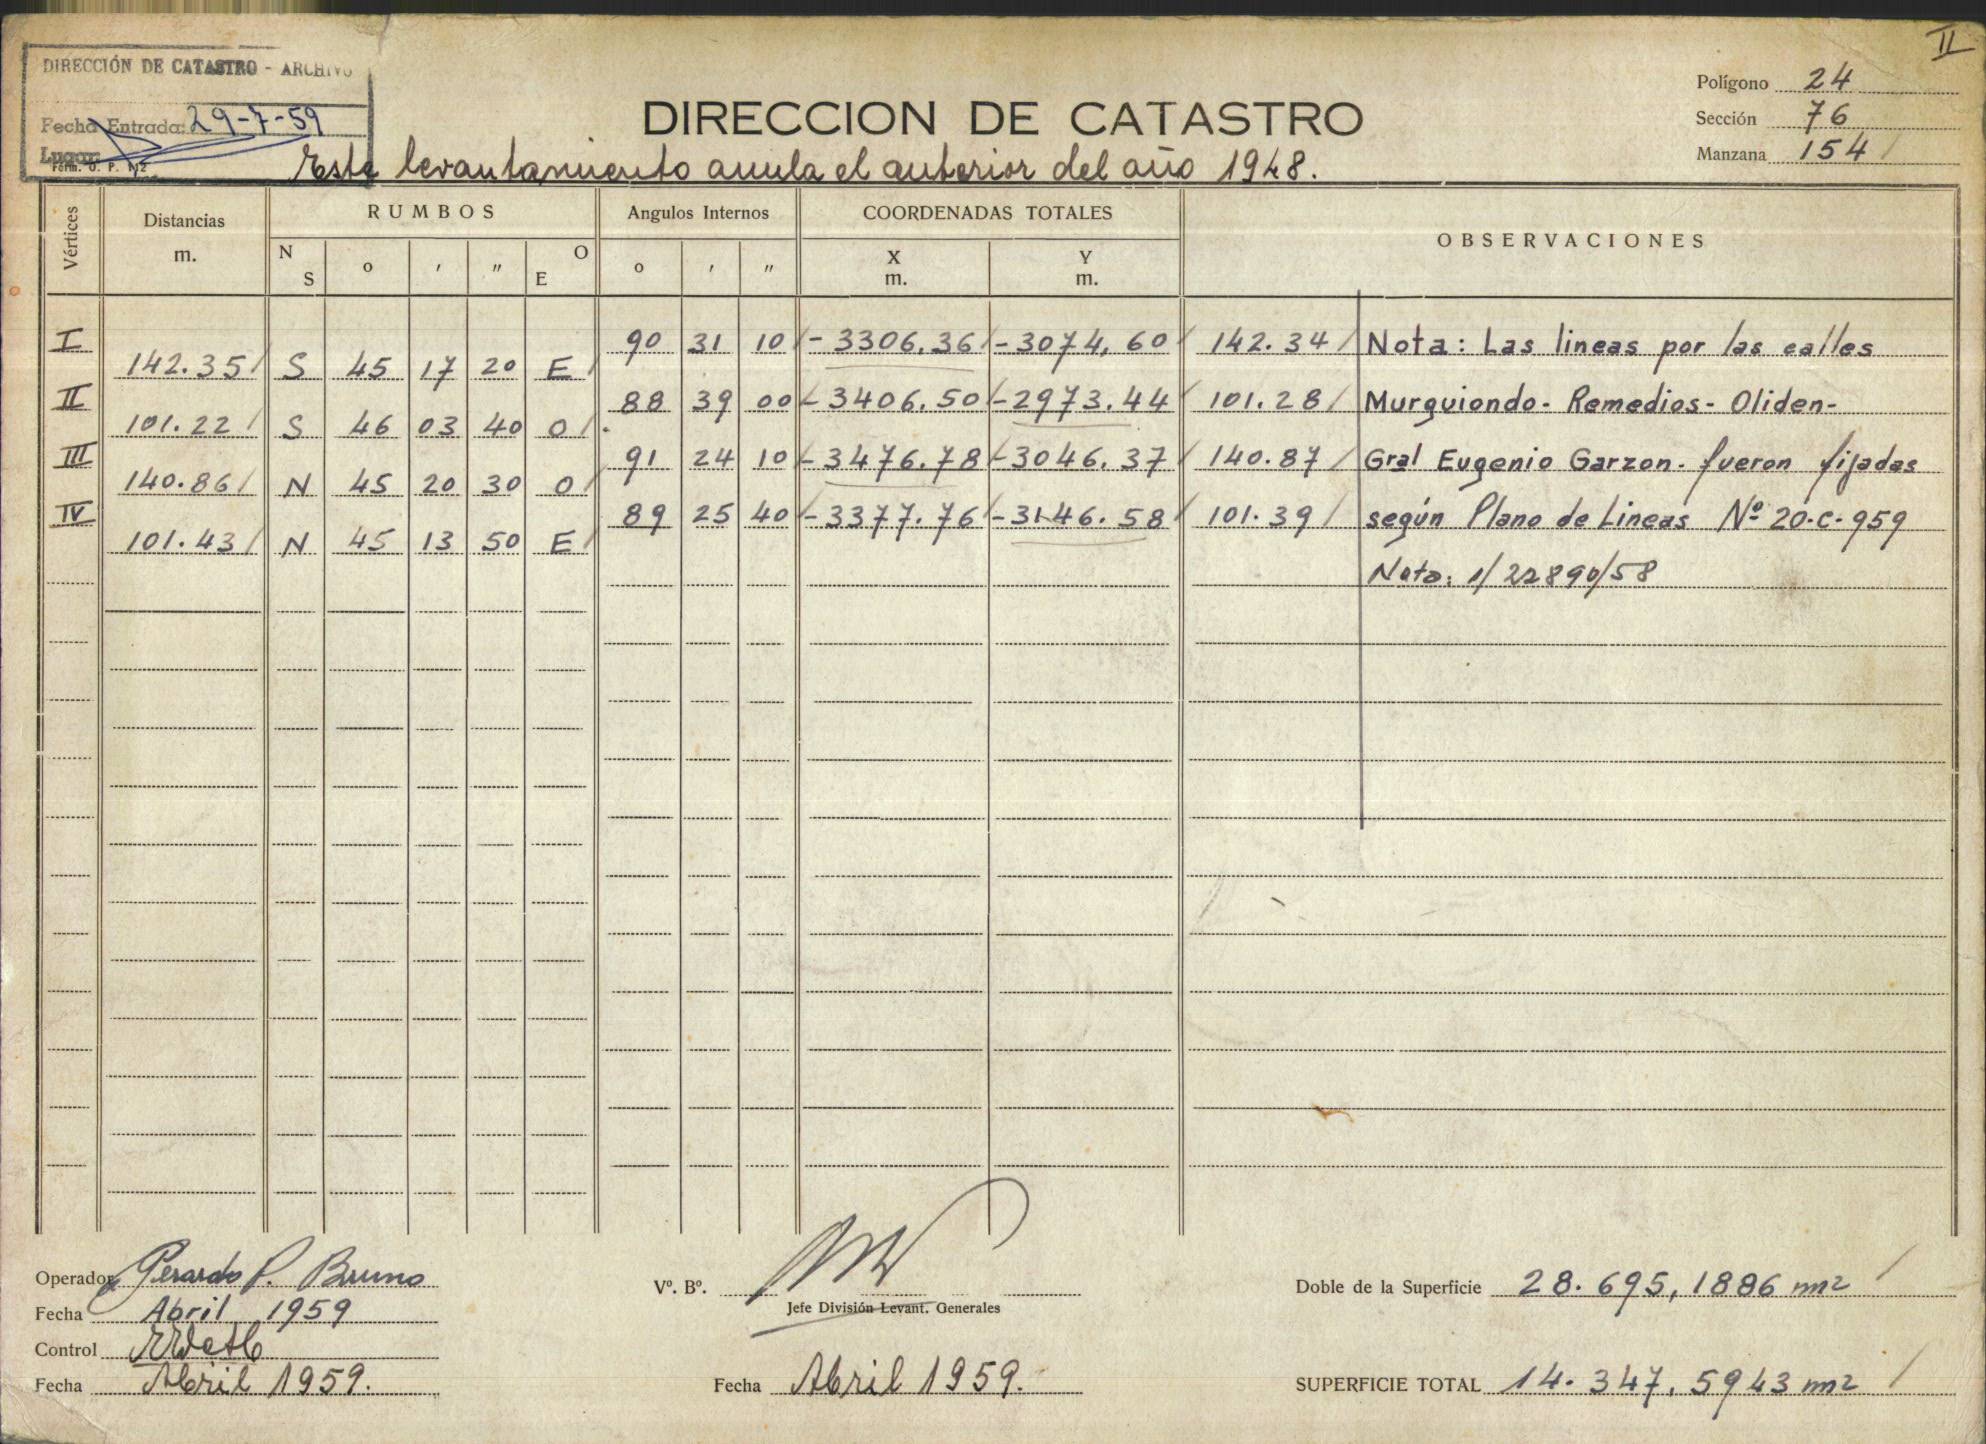 II
DIRECCIÓN DE CATASTRO - ARCHIVO
Fecha Entrada: 29-7-59
Lugar:
Form. O. P. 112
Polígono 24
Sección 76
Manzana 154
DIRECCION DE CATASTRO
Este levantamiento anula el anterior del año 1948.
Vértices Distancias m. RUMBOS Angulos Internos COORDENADAS TOTALES OBSERVACIONES
N S o ' " O E o ' " X m. Y m.
I 90 31 10 -3306.36 -3074,60 142.34 Nota: Las lineas por las calles
142.35 S 45 17 20 E
II 88 39 00 -3406.50 -2973.44 101.28 Murguiondo- Remedios- Oliden-
101.22 S 46 03 40 O
III 91 24 10 -3476.78 -3046.37 140.87 Gral Eugenio Garzon. fueron fijadas
140.86 N 45 20 30 O
IV 89 25 40 -3377.76 -3146.58 101.39 según Plano de Lineas Nº 20-C-959
101.43 N 45 13 50 E
Nota: 1/22890/58
Operador Gerardo P. Bruno
Fecha Abril 1959
Control
Fecha Abril 1959.
Vº. Bº.
Jefe División Levant. Generales
Fecha Abril 1959.
Doble de la Superficie 28.695,1886 m2
SUPERFICIE TOTAL 14.347,5943 m2